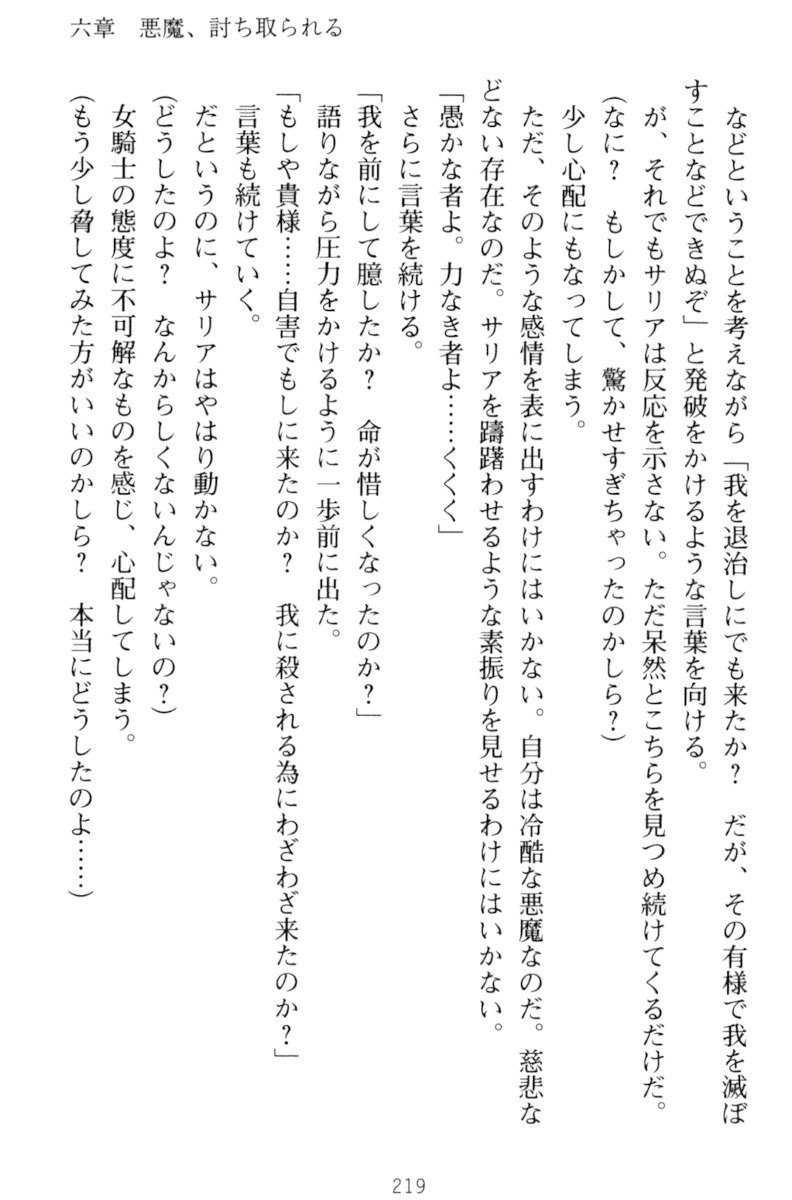 六章　悪魔、討ち取られる
　などということを考えながら「我を退治しにでも来たか？　だが、その有様で我を滅ぼ
すことなどできぬぞ」と発破をかけるような言葉を向ける。
　が、それでもサリアは反応を示さない。ただ呆然とこちらを見つめ続けてくるだけだ。
（なに？　もしかして、驚かせすぎちゃったのかしら？）
　少し心配にもなってしまう。
　ただ、そのような感情を表に出すわけにはいかない。自分は冷酷な悪魔なのだ。慈悲な
どない存在なのだ。サリアを躊躇わせるような素振りを見せるわけにはいかない。
「愚かな者よ。力なき者よ……くくく」
　さらに言葉を続ける。
「我を前にして臆したか？　命が惜しくなったのか？」
　語りながら圧力をかけるように一歩前に出た。
「もしや貴様……自害でもしに来たのか？　我に殺される為にわざわざ来たのか？」
　言葉も続けていく。
　だというのに、サリアはやはり動かない。
（どうしたのよ？　なんからしくないんじゃないの？）
　女騎士の態度に不可解なものを感じ、心配してしまう。
（もう少し脅してみた方がいいのかしら？　本当にどうしたのよ……）
219